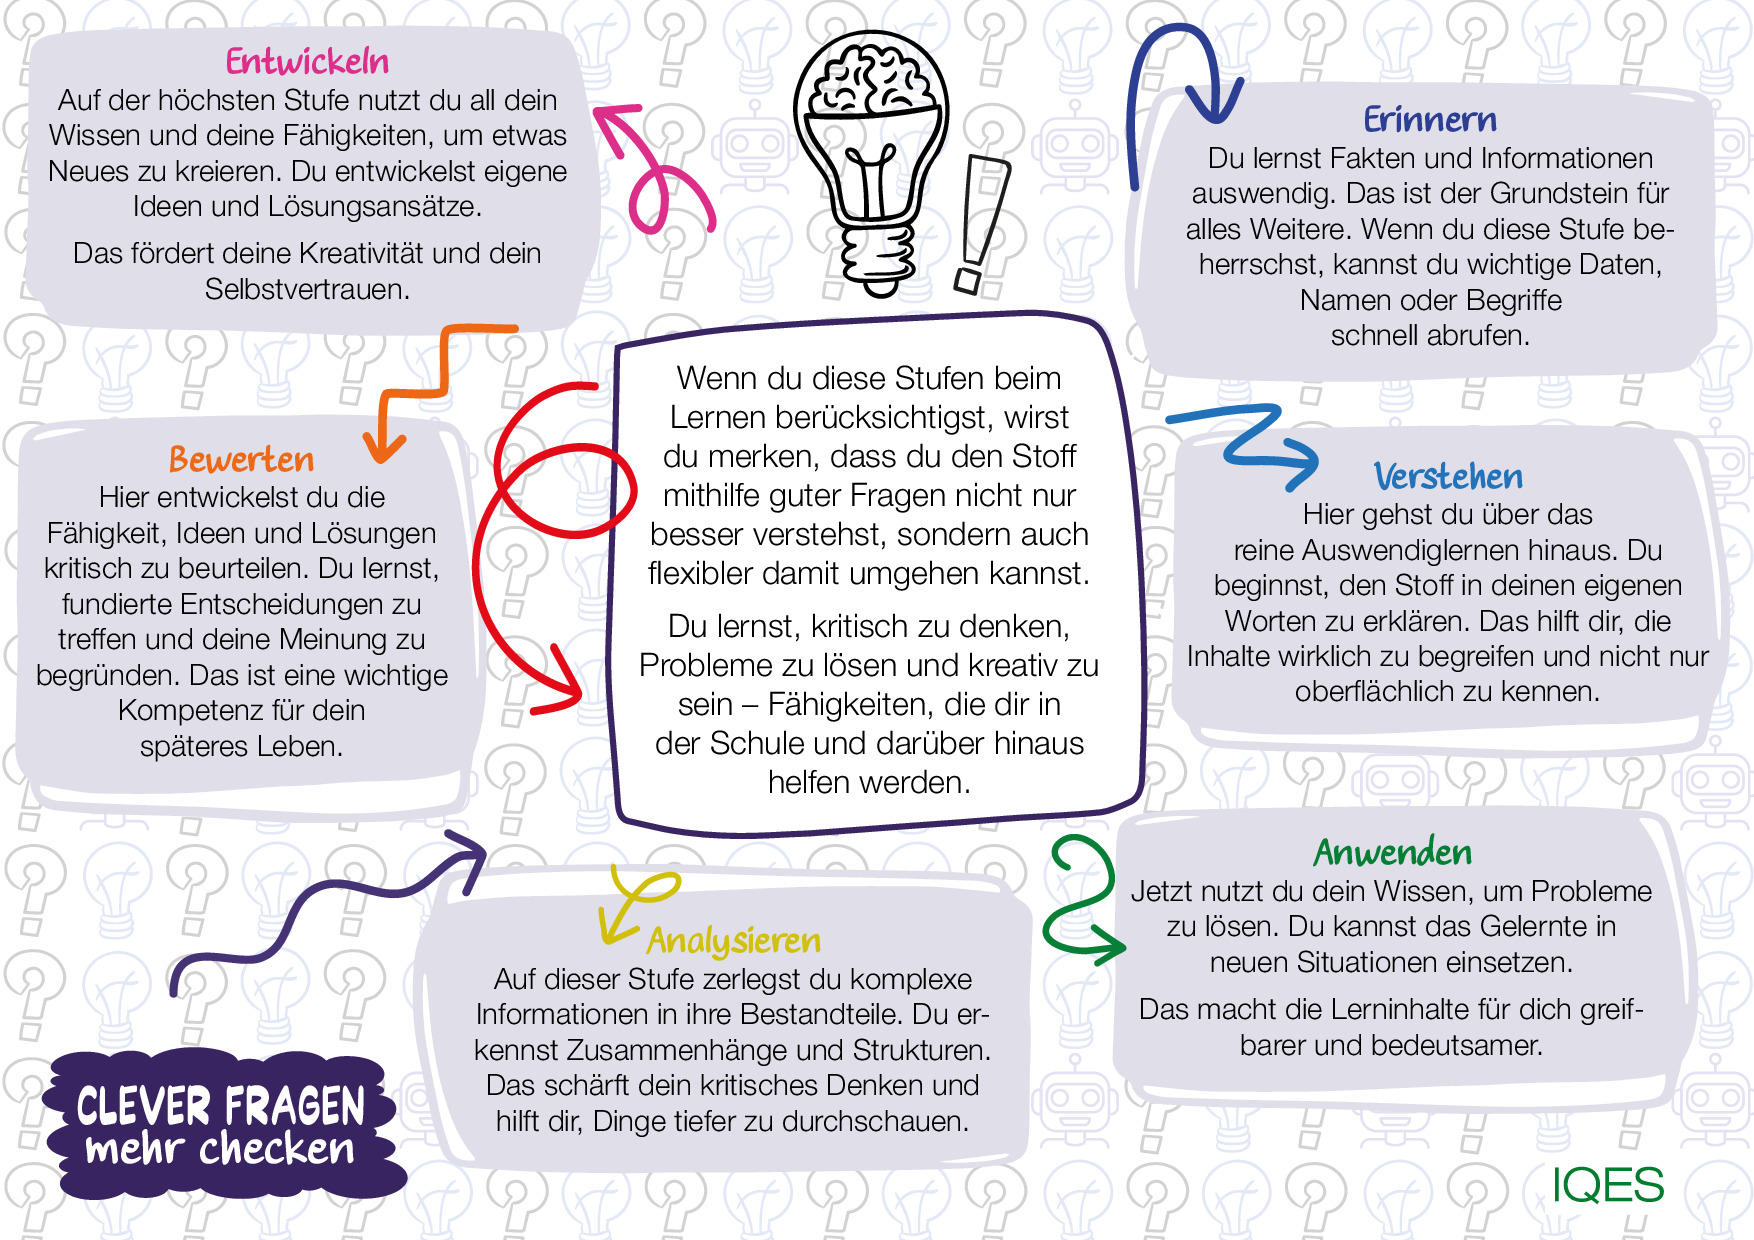 Entwickeln
Auf der höchsten Stufe nutzt du all dein
Wissen und deine Fähigkeiten, um etwas
Neues zu kreieren. Du entwickelst eigene
Ideen und Lösungsansätze.
Das fördert deine Kreativität und dein
Selbstvertrauen.
Erinnern
Du lernst Fakten und Informationen
auswendig. Das ist der Grundstein für
alles Weitere. Wenn du diese Stufe be-
herrschst, kannst du wichtige Daten,
Namen oder Begriffe
schnell abrufen.
Wenn du diese Stufen beim
Lernen berücksichtigst, wirst
du merken, dass du den Stoff
mithilfe guter Fragen nicht nur
besser verstehst, sondern auch
flexibler damit umgehen kannst.
Du lernst, kritisch zu denken,
Probleme zu lösen und kreativ zu
sein – Fähigkeiten, die dir in
der Schule und darüber hinaus
helfen werden.
Bewerten
Hier entwickelst du die
Fähigkeit, Ideen und Lösungen
kritisch zu beurteilen. Du lernst,
fundierte Entscheidungen zu
treffen und deine Meinung zu
begründen. Das ist eine wichtige
Kompetenz für dein
späteres Leben.
Verstehen
Hier gehst du über das
reine Auswendiglernen hinaus. Du
beginnst, den Stoff in deinen eigenen
Worten zu erklären. Das hilft dir, die
Inhalte wirklich zu begreifen und nicht nur
oberflächlich zu kennen.
Anwenden
Jetzt nutzt du dein Wissen, um Probleme
zu lösen. Du kannst das Gelernte in
neuen Situationen einsetzen.
Das macht die Lerninhalte für dich greif-
barer und bedeutsamer.
Analysieren
Auf dieser Stufe zerlegst du komplexe
Informationen in ihre Bestandteile. Du er-
kennst Zusammenhänge und Strukturen.
Das schärft dein kritisches Denken und
hilft dir, Dinge tiefer zu durchschauen.
CLEVER FRAGEN
mehr checken
IQES